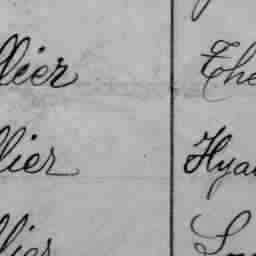 llier The
llier Hya
llier